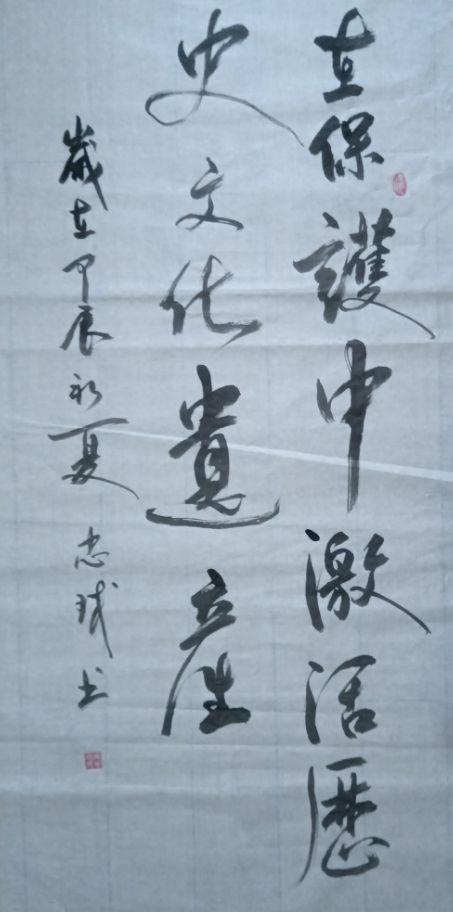 在保護中激活歷
史文化遺產
歲在甲辰初夏 忠球书